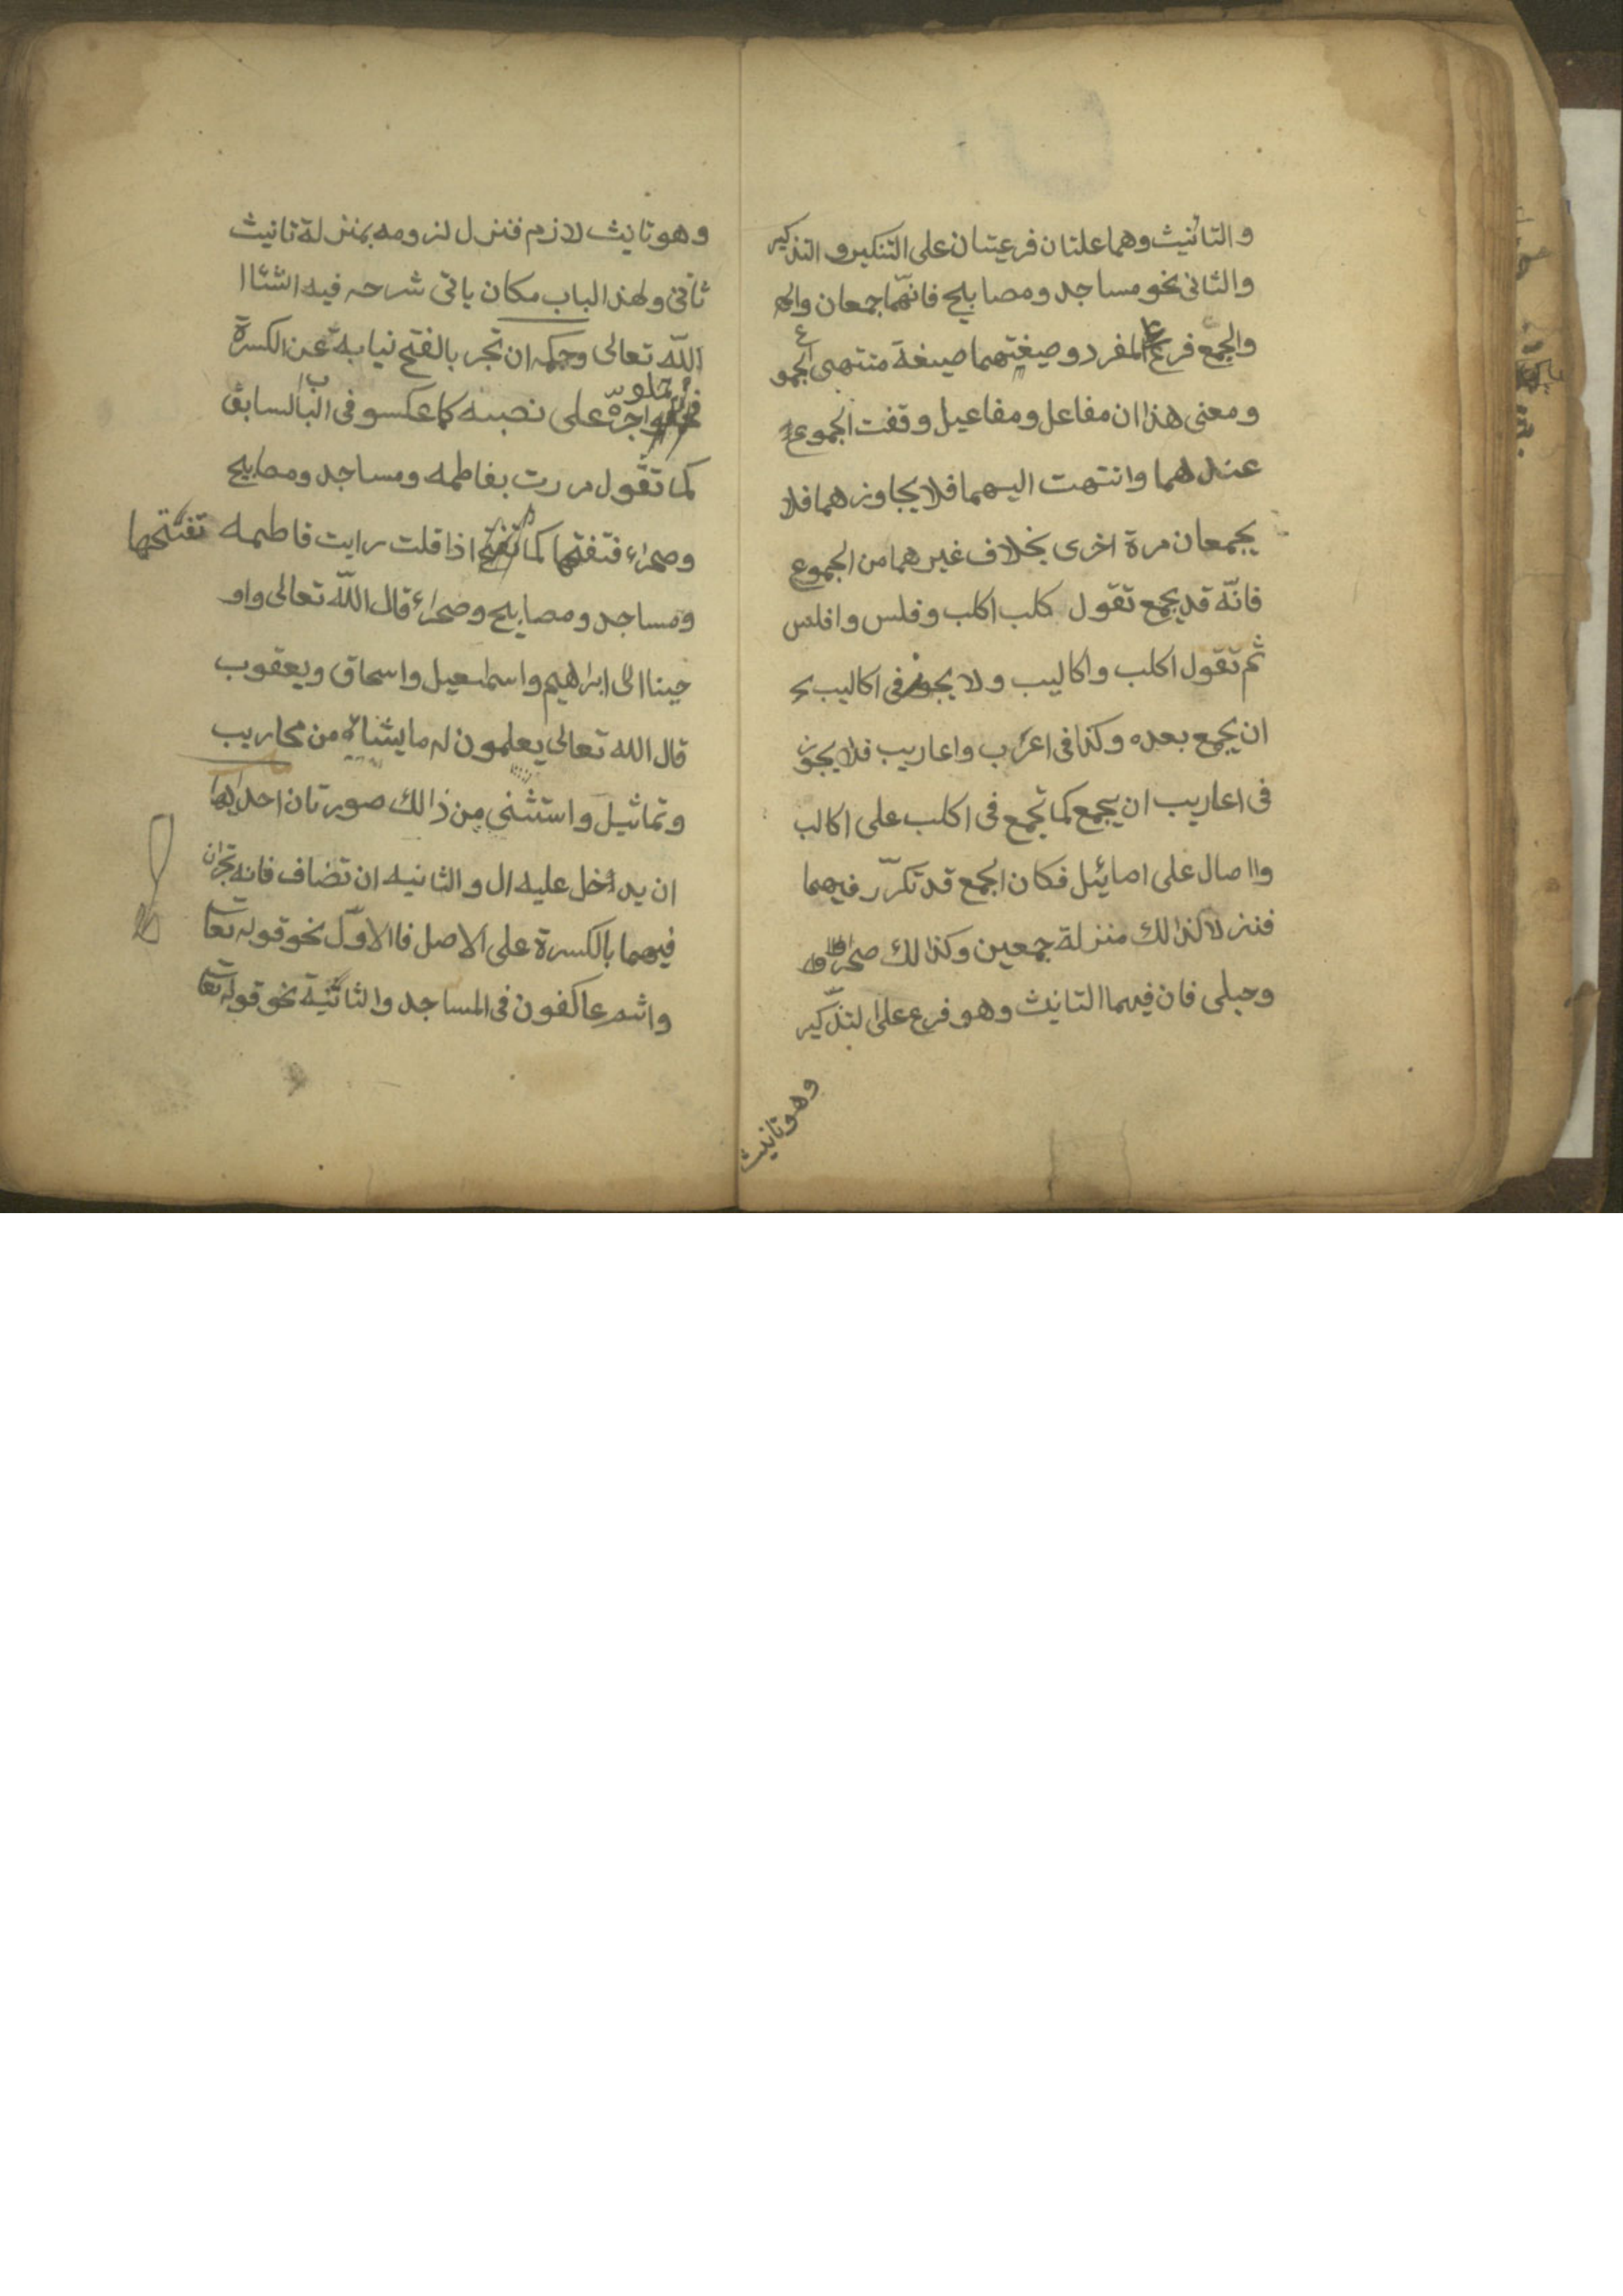 والتانيث وهما علتان فرعيتان على التنكير والتذكير
والثانى نحو مساجد ومصابيح فانهّما جمعان والج
والجمع فرع المفرد وصيغتهما صيغة منتهى الجموع
ومعنى هذا ان مفاعل ومفاعيل وقفت الجموع
عندهما وانتهت اليهما فلا يجاوزهما فلا
يجمعان مرة اخرى بخلاف غيرهما من الجموع
فانّه قد يجمع تقول كلب اكلب وفلس وافلس
ثم تقول اكلب واكاليب ولا يجوز فى اكاليب
ان يجمع بعده وكذا فى اعرب واعاريب فلا يجوز
فى اعاريب ان يجمع كما تجمع فى اكلب على اكالب
وااصال على اصائيل فكان الجمع قد تكرّر فيهما
فنزلا لذالك منزلة جمعين وكذالك صحراء
وحبلى فان فيهما التانيث وهو فرع على التذّكير
وهو تانيث
وهو تانيث لازم فنزل لزومه بمنزلة تانيث
ثانى ولهذ الباب مكان ياتى شرحه فيه انشاا
اللّه تعالى وحكمه ان تجر بالفتح نيابة عن الكسرة
جرّه على نصبه كما عكسو فى الباب السابق
كما تقول مررت بفاطمه ومساجد ومصابيح
وصحراء فتفتحها كما تفتحها اذا قلت رايت فاطمه
ومساجد ومصابيح وصحراء قال اللّه تعالى واو
حينا الى ابراهيم واسمعيل واسحاق ويعقوب
قال الله تعالى يعلمون له ما يشاء من محاريب
وتماثيل واستثنى من ذالك صورتان احديها
ان يدخل عليه ال والثانيه ان تضاف فانه تجران
فيهما بالكسرة على الاصل فاالاوّل نحو قوله تعا
وانتم عاكفون فى المساجد والثانية نحو قوله تعا